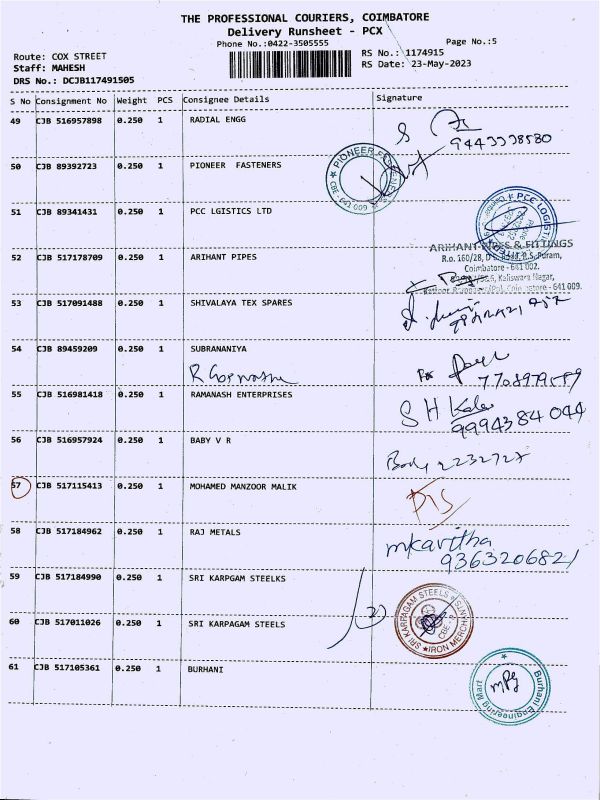 THE PROFESSIONAL COURIERS, COIMBATORE
Delivery Runsheet - PCX
Phone No.:0422-3505555
Page No.:5
Route: COX STREET
RS No.: 1174915
Staff: MAHESH
RS Date: 23-May-2023
DRS No.: DCJB117491505
S No Consignment No Weight PCS Consignee Details Signature
49 CJB 516957898 0.250 1 RADIAL ENGG
9443338580
50 CJB 89392723 0.250 1 PIONEER FASTENERS
PIONEER FASTENERS
CBE - 641 009
51 CJB 89341431 0.250 1 PCC LGISTICS LTD
PCC LOGISTI
52 CJB 517178709 0.250 1 ARIHANT PIPES
ARIHANT PIPES & FITTINGS
R.o. 160/28, R.S. Puram,
Coimbatore - 641 002.
Kaliswara Nagar,
Coimbatore - 641 009.
53 CJB 517091488 0.250 1 SHIVALAYA TEX SPARES
54 CJB 89459209 0.250 1 SUBRANANIYA
55 CJB 516981418 0.250 1 RAMANASH ENTERPRISES
S H Kala
9994384044
56 CJB 516957924 0.250 1 BABY V R
Baby 2232727
57 CJB 517115413 0.250 1 MOHAMED MANZOOR MALIK
58 CJB 517184962 0.250 1 RAJ METALS
mkavitha
9363206821
59 CJB 517184990 0.250 1 SRI KARPGAM STEELKS
60 CJB 517011026 0.250 1 SRI KARPAGAM STEELS
2)
SRI KARPAGAM STEELS
IRON MERCHANTS
CBE
61 CJB 517105361 0.250 1 BURHANI
Burhani Engineering Mart